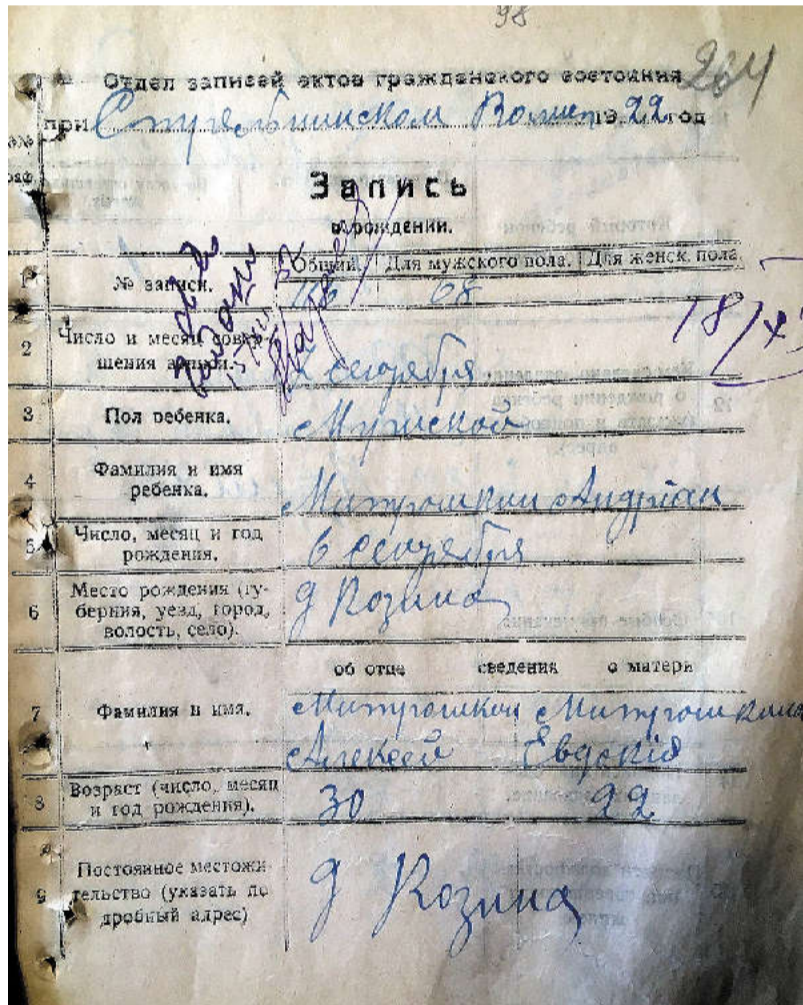 98
264
Отдел записей актов гражданского состояния
при Волисп. 1922 год
Запись
о рождении.
Общий. Для мужского пола. Для женск. пола
1 № записи. 68
2 Число и месяц совер-
шения записи. 7 сентября
3 Пол ребенка. Мужской
4 Фамилия и имя
ребенка. Митрошкин Андриан
5 Число, месяц и год
рождения. 6 сентября
6 Место рождения (гу-
берния, уезд, город,
волость, село). д Козина
об отце сведения о матери
7 Фамилия и имя. Митрошкин Митрошкина
Алексей Евдокия
8 Возраст (число, месяц
и год рождения). 30 22
9 Постоянное местожи-
тельство (указать по
дробный адрес) д Козина